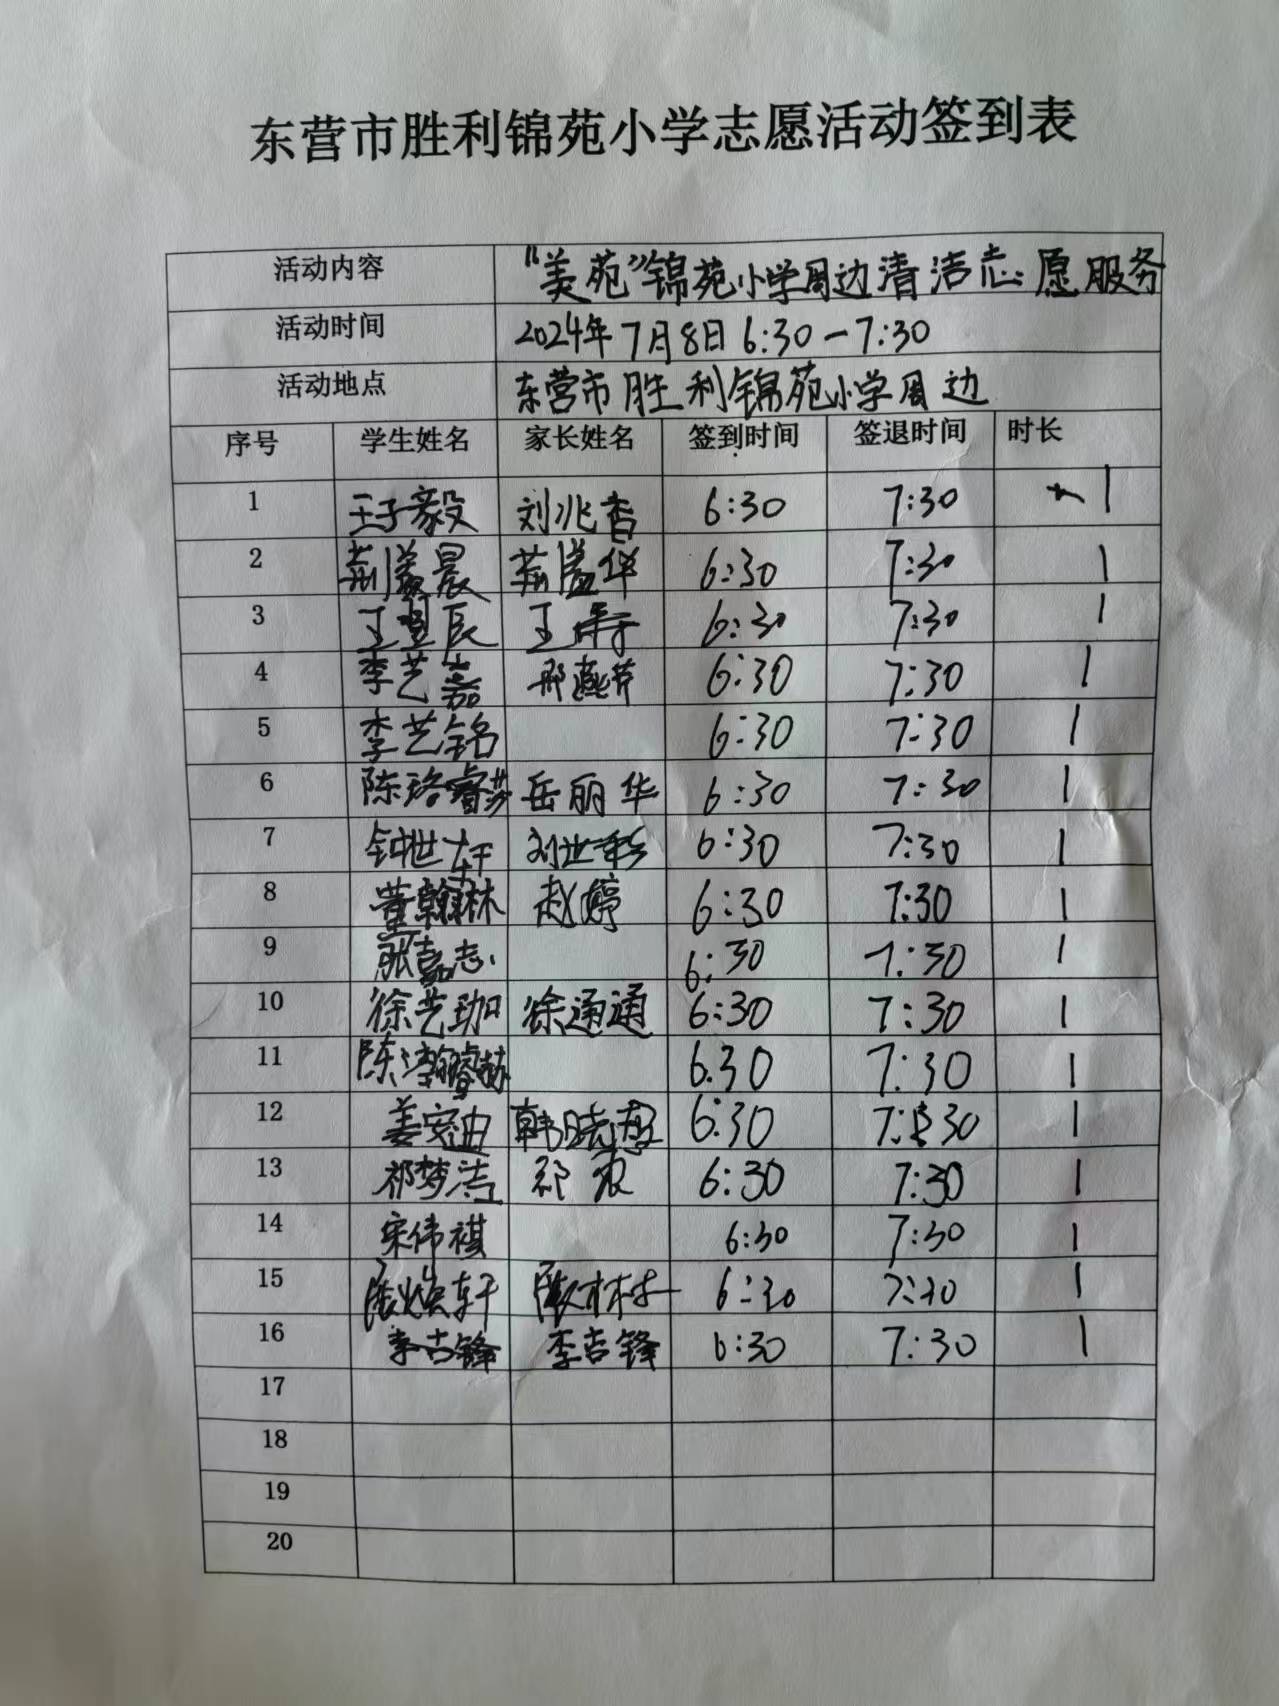 东营市胜利锦苑小学志愿活动签到表
活动内容 “美苑”锦苑小学周边清洁志愿服务
活动时间 2024年7月8日 6:30—7:30
活动地点 东营市胜利锦苑小学周边
序号 学生姓名 家长姓名 签到时间 签退时间 时长
1 王子毅 刘兆香 6:30 7:30 1
2 6:30 7:30 1
3 6:30 7:30 1
4 李艺嘉 邢燕芹 6:30 7:30 1
5 李艺铭 6:30 7:30 1
6 陈珞睿莎 岳丽华 6:30 7:30 1
7 钟世轩 刘世彩 6:30 7:30 1
8 董翰林 赵婷 6:30 7:30 1
9 张嘉志 6:30 7:30 1
10 徐艺珈 徐通通 6:30 7:30 1
11 6.30 7:30 1
12 姜安迪 6:30 7:30 1
13 祁梦洁 6:30 7:30 1
14 宋伟祺 6:30 7:30 1
15 6:30 7:30 1
16 李吉锋 李吉锋 6:30 7:30 1
17
18
19
20